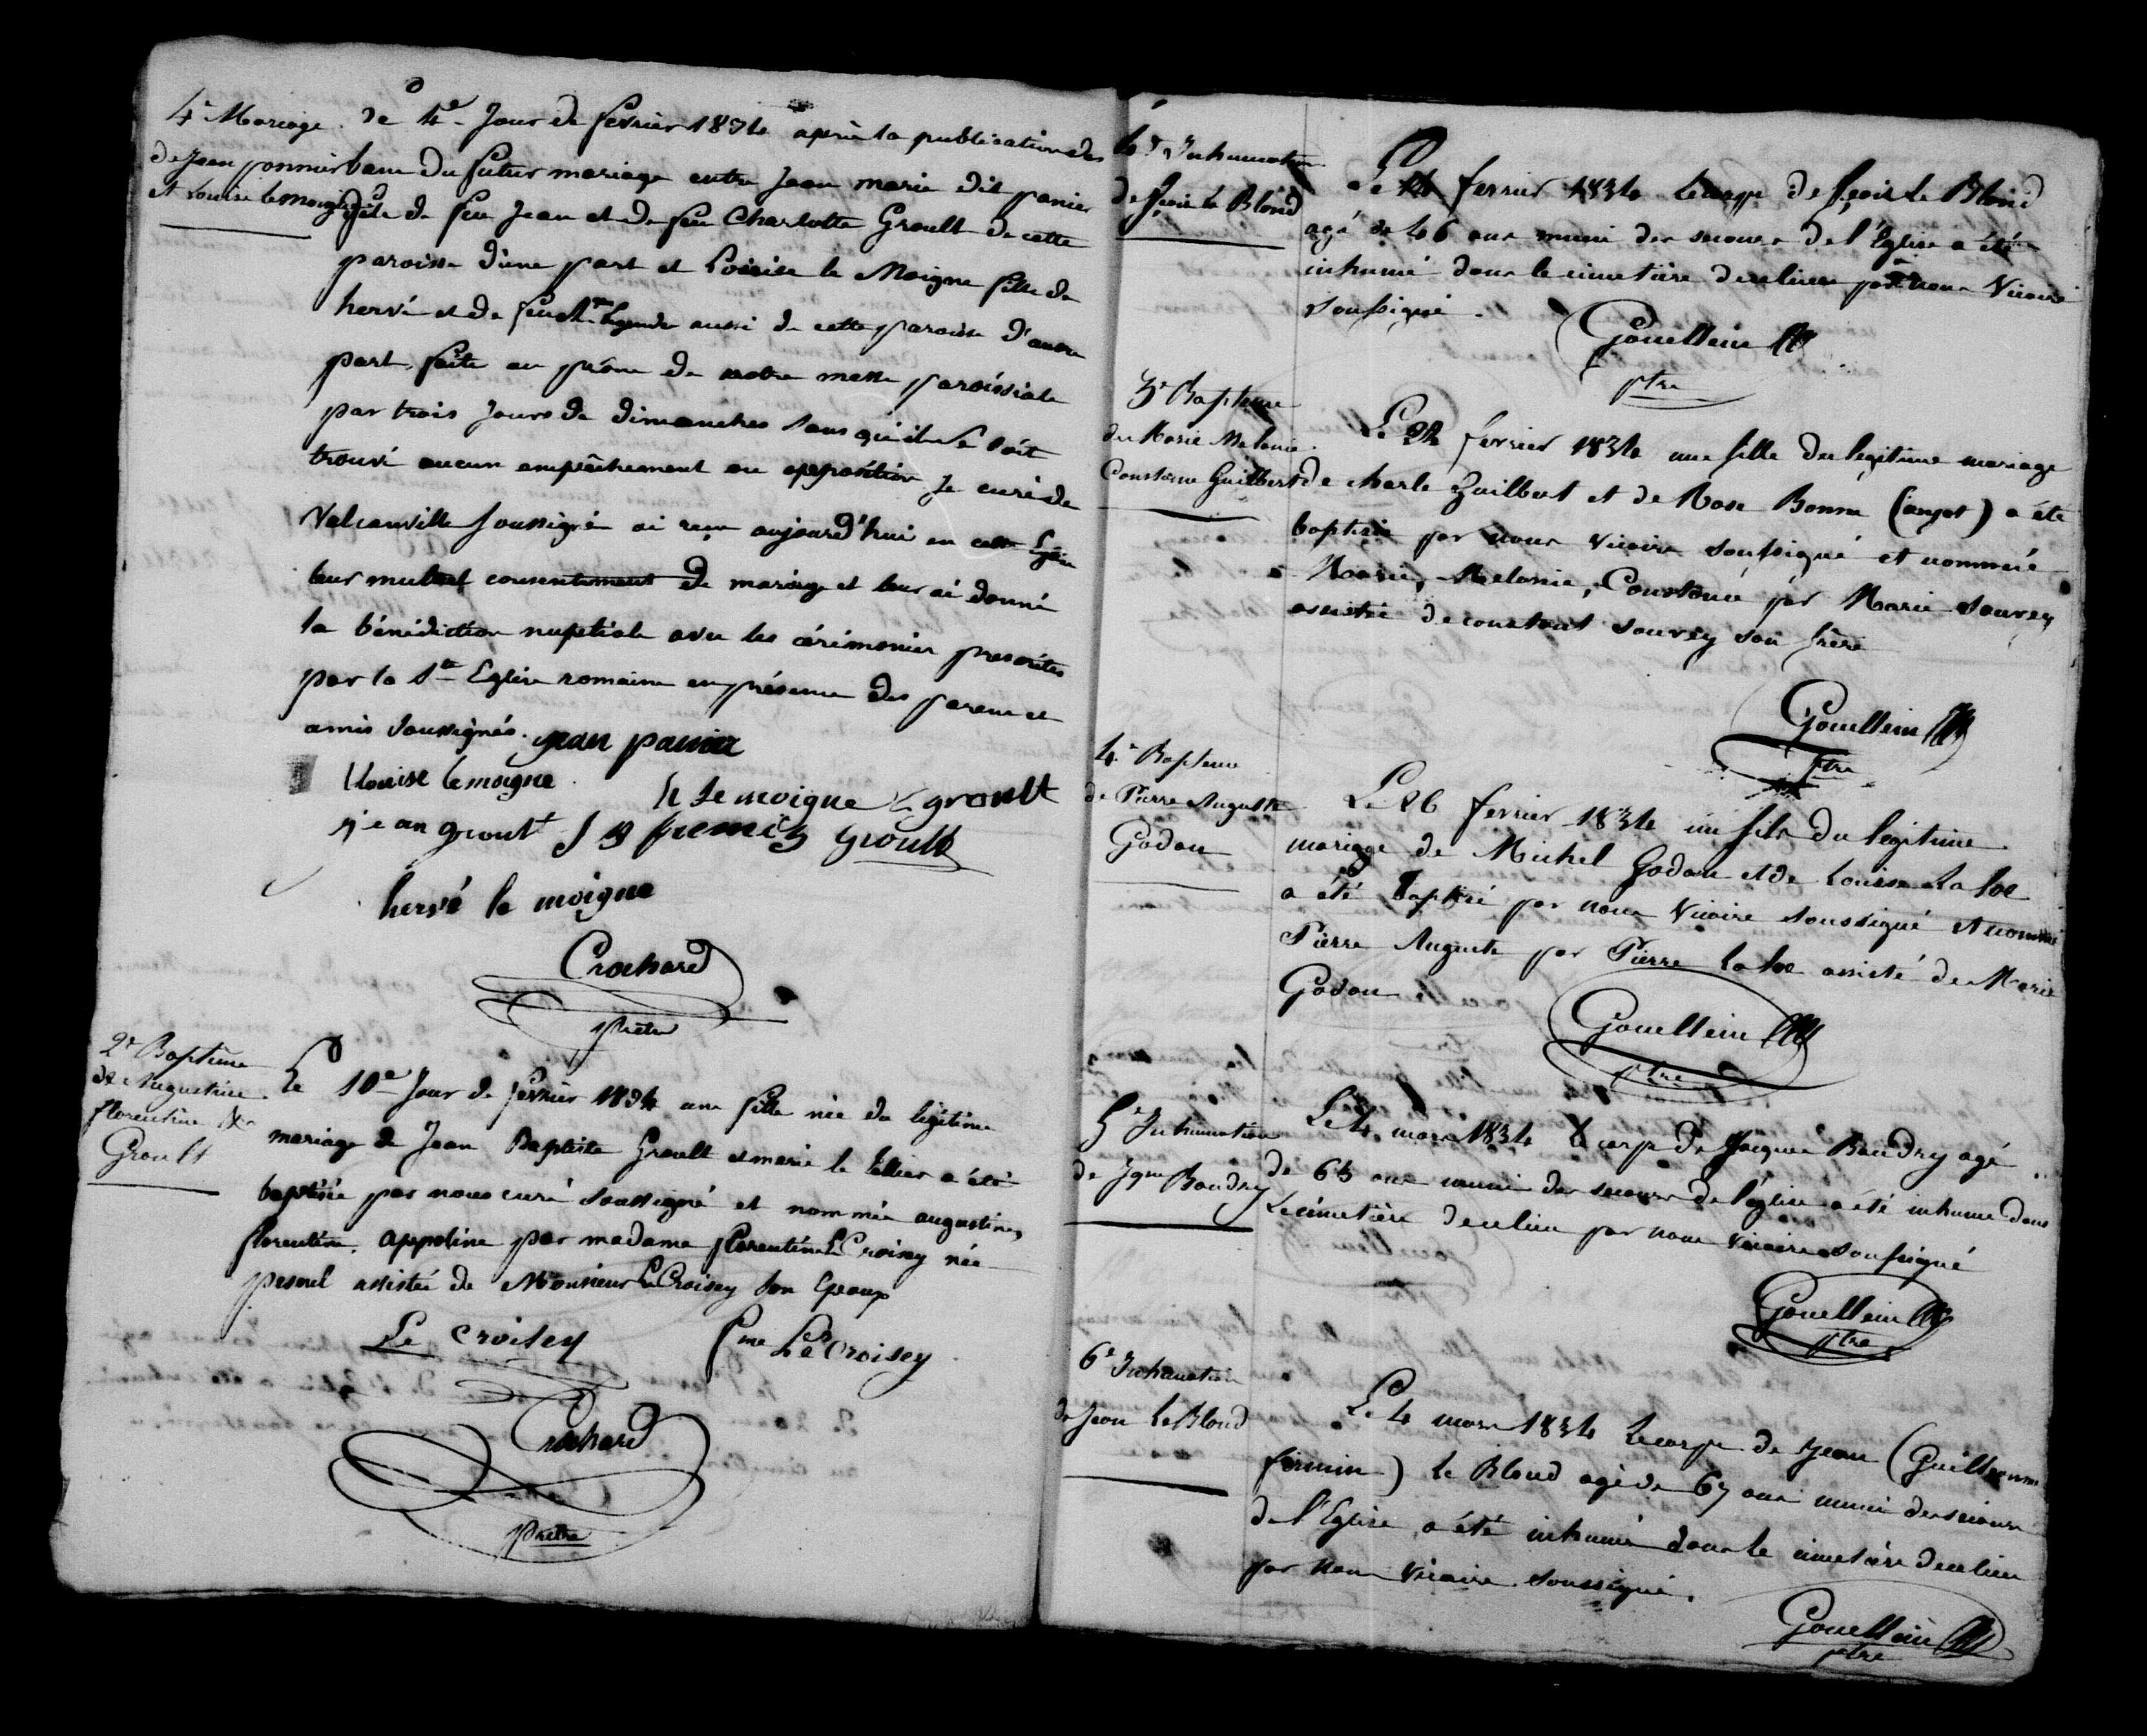 4e Mariage
de Jean pannier
et Louise lemoigne
Le 4e Jour de fevrier 1834 après la publication des
bans du futur mariage entre Jean marie dit panier
fils de feu Jean et de feu Charlotte Groult de cette
paroisse d'une part et Louise le Moigne fille de
hervé et de feu aussi de cette paroisse d'autre
part, faite au prône de notre messe paroissiale
par trois Jours de dimanches sans qu'il se soit
trouvé aucun empêchement ou opposition Je curé de
Valcanville soussigné ai reçu aujourd'hui en cette Eglise
leur mutuel consentement de mariage et leur ai donné
la bénédiction nuptiale avec les cérémonies prescrites
par la Ste Eglise romaine en présence des parens et
amis soussignés. jean panier
Louise lemoigne
h le moigne L groult
jean groult groult
hervé le moigne
Crochard
prêtre
2e Baptême
de Augustine
florentine &a
Groult
Le 10e Jour de fevrier 1834 une fille née du légitime
mariage de Jean Baptiste Groult et marie le tellier a été
baptisée par nous curé soussigné et nommée augustine,
florentine, appoline par madame florentine LeCroisey née
pesnel assistée de Monsieur LeCroisey son Epoux
Le Croisey
fme Le Croisey
Crochard
prêtre
4e Inhumation
de fçois le Blond
Le fevrier 1834 le corps de fçois le Blond
agé de 46 ans muni des secours de l'Eglise a été
inhumé dans le cimetière de ce lieu par nous Vicaire
soussigné.
Gouellein
ptre
3e Baptême
de Marie Melanie
Constance Guilbert
Le fevrier 1834 une fille du legitime mariage
de charle Guilbert et de Rose Bonne (anjot) a été
baptisée par nous vicaire soussigné et nommée
Marie, Melanie, Constance par Marie Souvrey
assistée de constant souvrey son frère
Gouellein
ptre
4e Bapteme
de Pierre Auguste
Godou
Le 26 fevrier 1834 un fils du legitime
mariage de Michel Godou et de Louise La loe
a été baptisé par nous Vicaire soussigné et nommé
Pierre Auguste par Pierre La loe assisté de Marie
Godou.
Gouellein
ptre
5e Inhumation
de Jques Baudry
Le 4 mars 1834 le corps de Jacques Baudry agé
de 65 ans muni des secours de l'église a été inhumé dans
Le cimetière de ce lieu par nous Vicaire soussigné
Gouellein
ptre
6e Inhumation
de Jean LeBlond
Le 4 mars 1834 le corps de Jean (Guillaume
firmin) le Blond agé de 67 ans muni des secours
de l'Eglise a été inhumé dans le cimetière de ce lieu
par nous Vicaire soussigné.
Gouellein
ptre